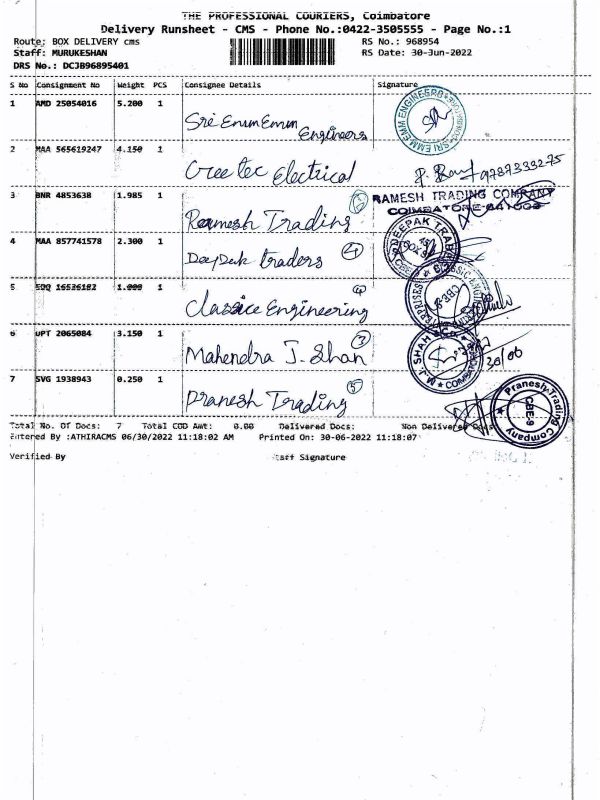 THE PROFESSIONAL COURIERS, Coimbatore
Delivery Runsheet - CMS - Phone No.:0422-3505555 - Page No.:1
Route: BOX DELIVERY cms RS No.: 968954
Staff: MURUKESHAN RS Date: 30-Jun-2022
DRS No.: DCJB96895401
S No Consignment No Weight PCS Consignee Details Signature
1 AMD 25054016 5.200 1 Sri Emm Emm Engineers
SRI EMM EMM ENGINEERS
2 MAA 565619247 4.150 1 Cree tec Electrical 9787333275
3 BNR 4853638 1.985 1 Ramesh Trading
RAMESH TRADING COMPANY
COIMBATORE-641009
4 MAA 857741578 2.300 1 Deepak traders 4
DEEPAK TRADERS
5 1.000 1 Classice Engineering
CBE-9
6 UPT 2065084 3.150 1 Mahendra J. Shah
M.J. SHAH COIMBATORE
30/06
7 SVG 1938943 0.250 1 Pranesh Trading 5
Pranesh Trading Company
CBE-9
Total No. Of Docs: 7 Total COD Amt: 0.00 Delivered Docs: Non Delivered Docs
Entered By :ATHIRACMS 06/30/2022 11:18:02 AM Printed On: 30-06-2022 11:18:07
Verified By Staff Signature